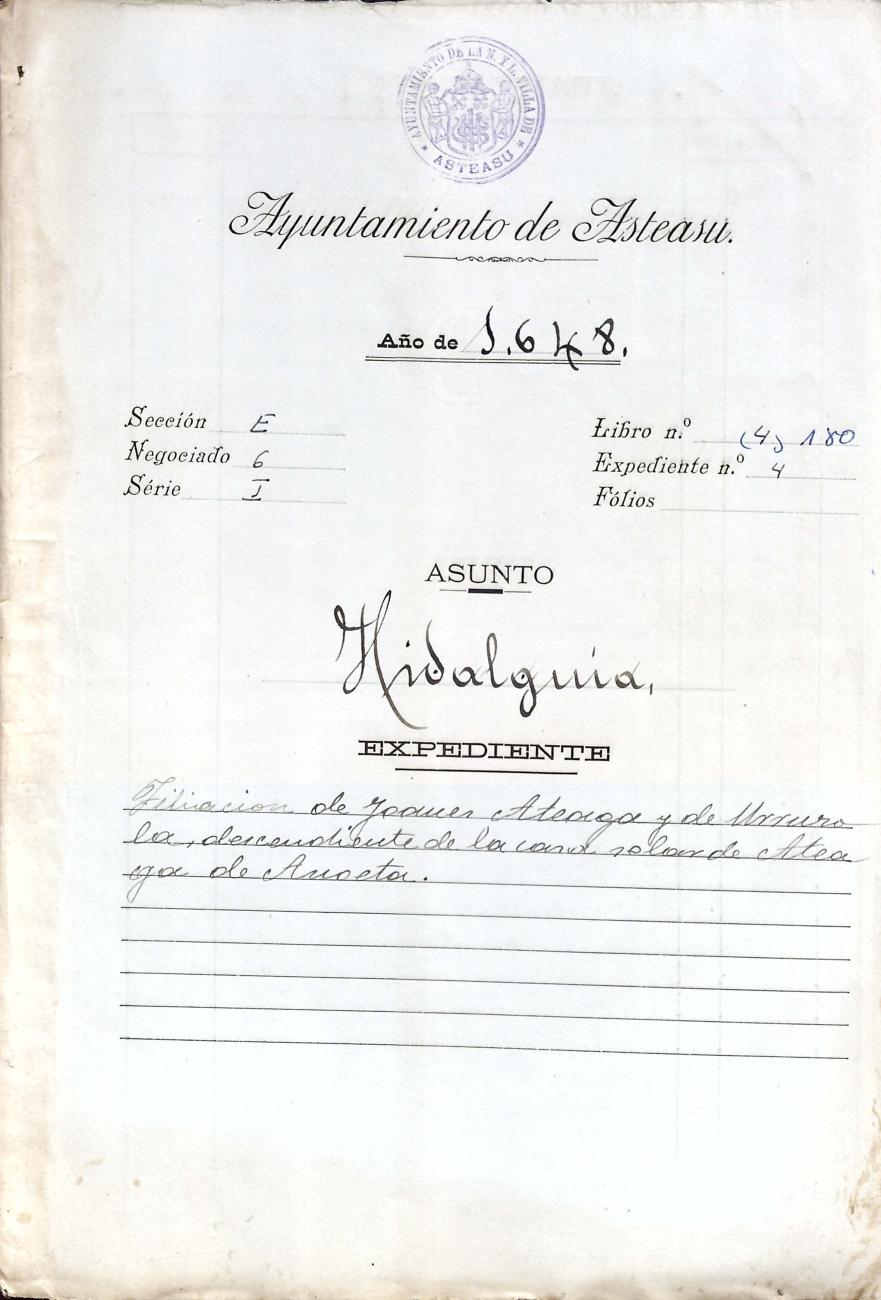 AYUNTAMIENTO DE LA N. Y L. VILLA DE
★ ASTEASU ★
Ayuntamiento de Asteasu.
Año de 1.648.
Sección E
Negociado 6
Série I
Libro n.º (4) 180
Expediente n.º 4
Fólios
ASUNTO
Hidalguia,
EXPEDIENTE
Filiacion de Joanes Ateaga y de Urruzo
la, descendiente de la casa solar de Atea
ga de Anoeta.